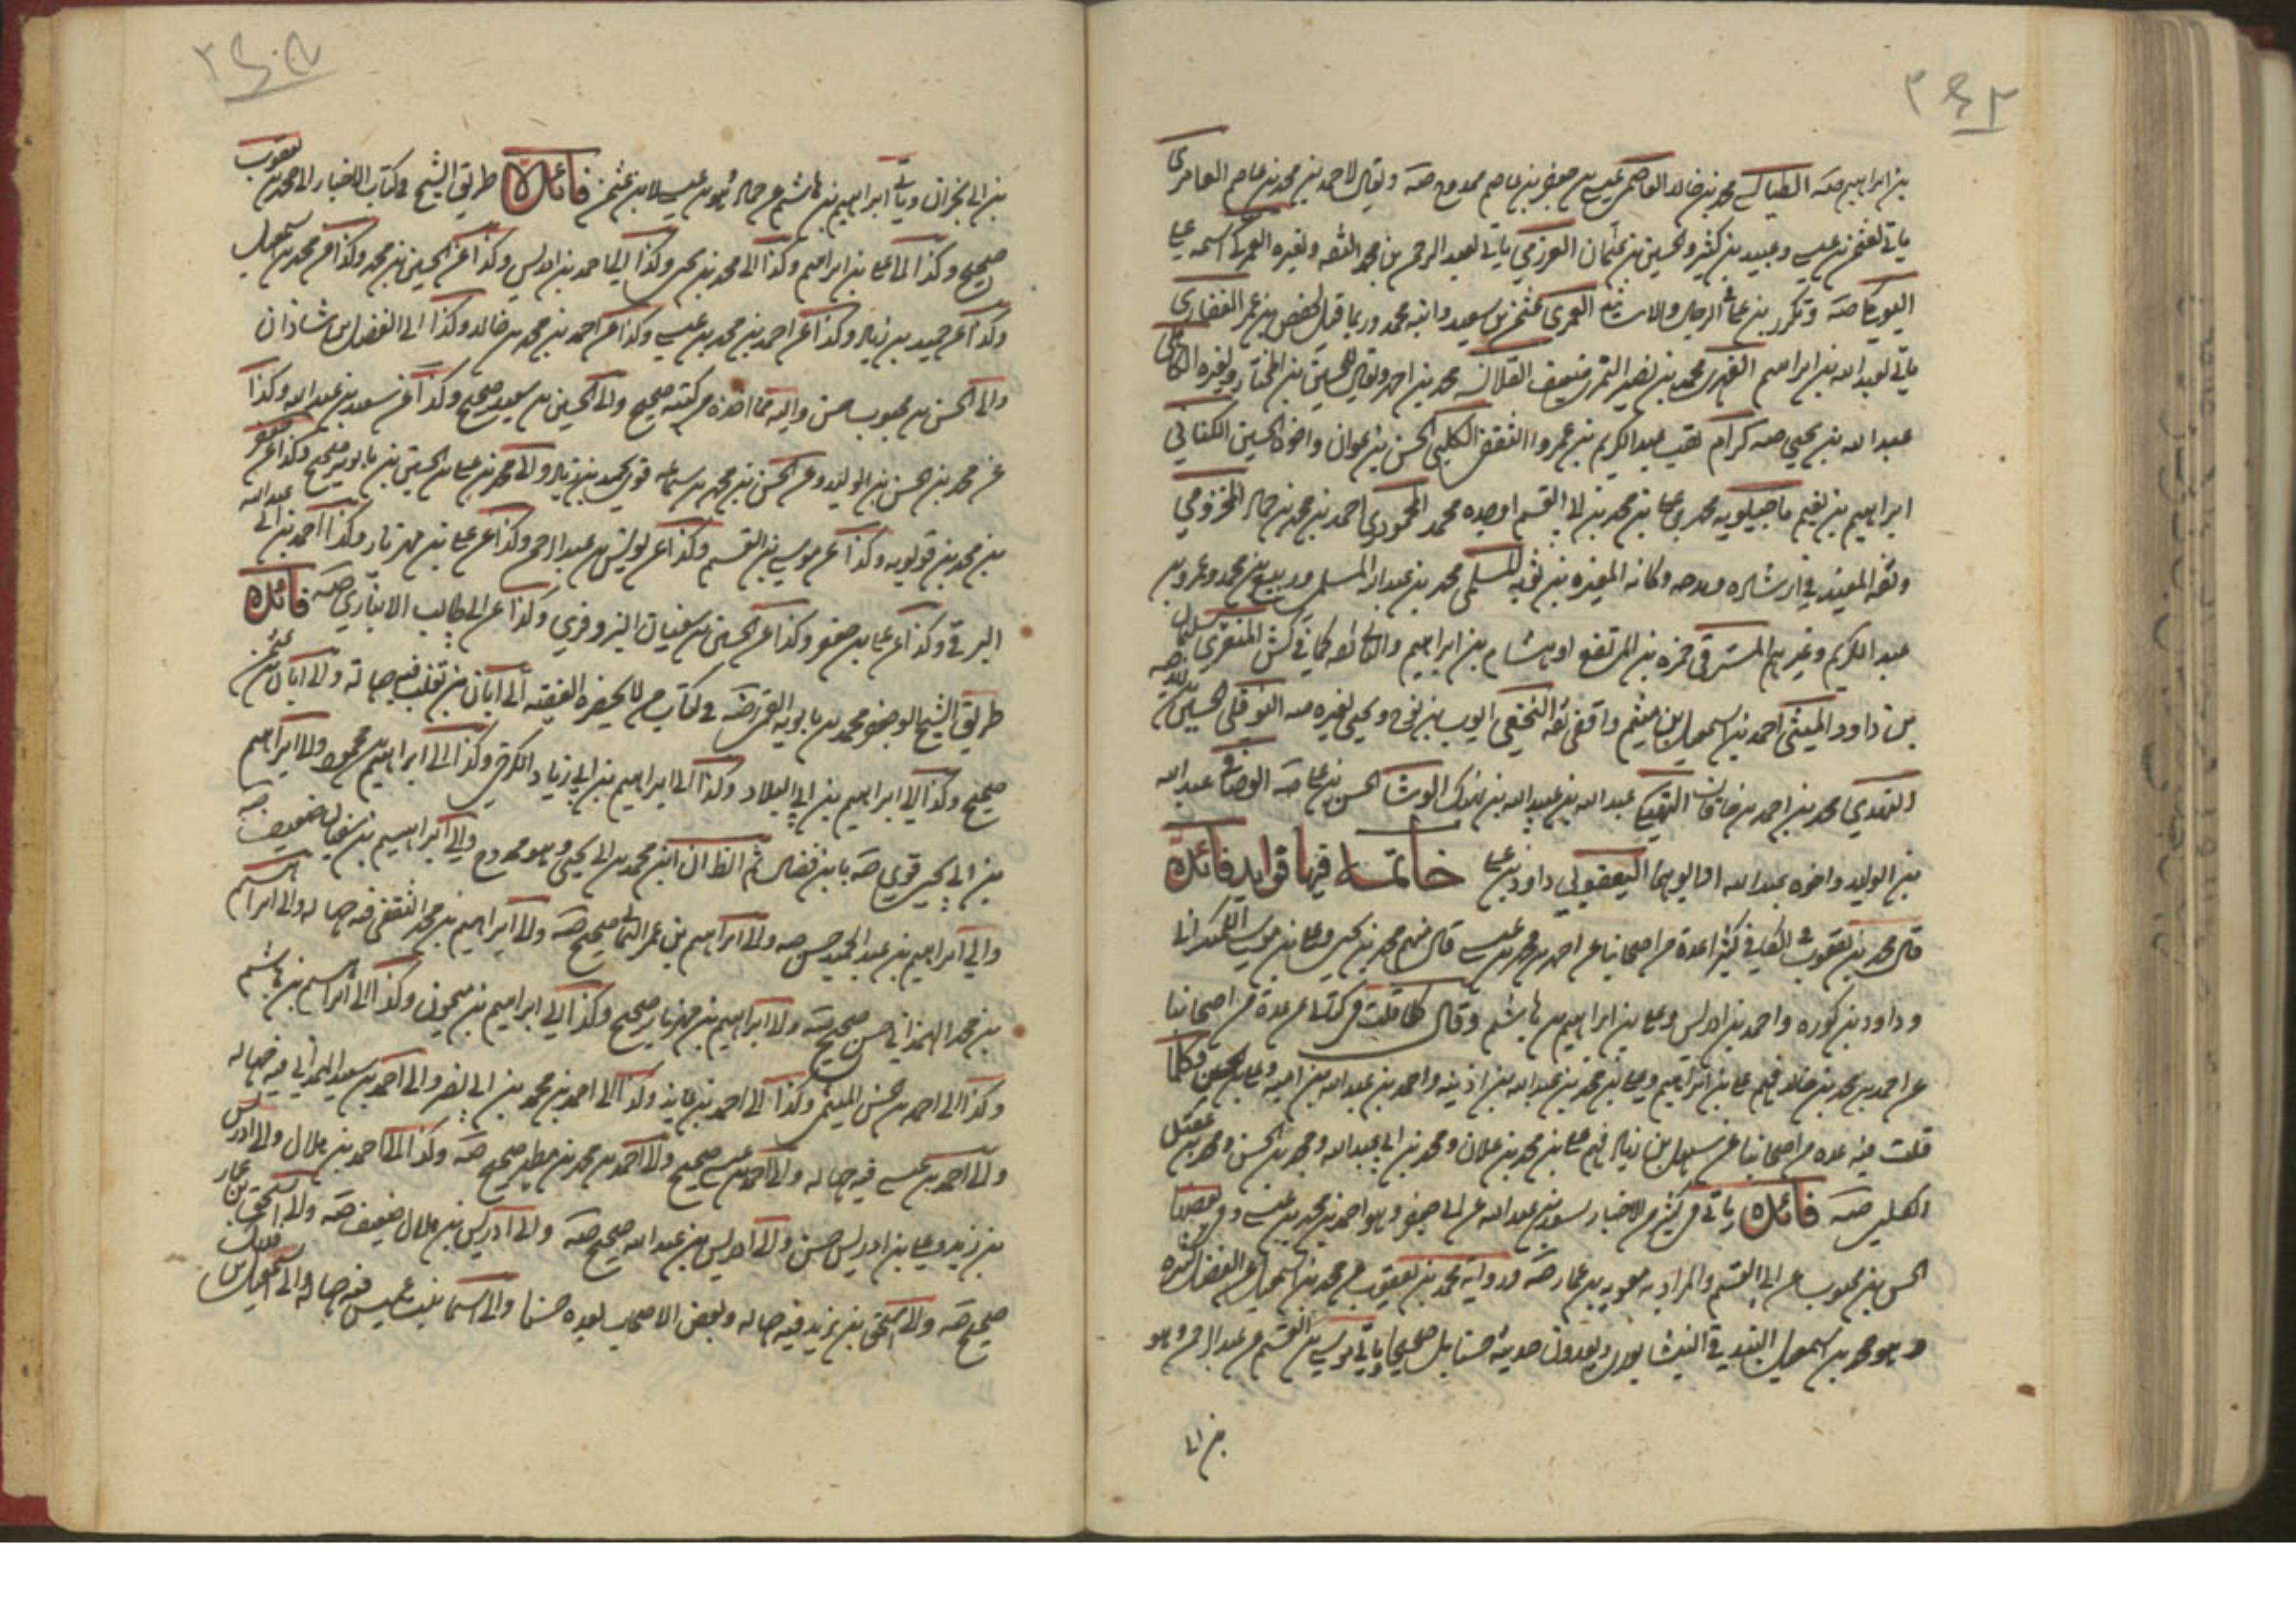 بن ابراهيم صه الطيالسي محمد بن خالد العاصمي عيسى بن جعفر بن عاصم ممدوح صه ويقال لاحمد بن محمد بن عاصم العامري
ياتي لعثمن بن عيسى وعبيد بن كثير والحسين بن عثمان العرزمي ياتي لعبد الرحمن بن محمد الثقه ولغيره العمركي اسمه علي
البوفكي صه العمري عثمن بن سعيد وابنه محمد وربما قيل لحفص بن عمر الغفاري
ياتي لعبد الله بن ابراهيم الفهري محمد بن نصير النمري ضعيف القلانسي محمد بن احمد ويقال للحسين بن المختار ولغيره الكاهلي
عبد الله بن يحيى صه كرام لقب عبد الكريم بن عمرو الكلبي الحسن بن علوان واخوه الحسين الكناني
ابراهيم بن نعيم ماجيلويه محمد بن علي بن محمد بن ابي القسم او جده محمد المحمودي احمد بن محمد بن حماد المخزومي
وثقه المفيد في ارشاده ومدحه وكانه المغيره بن المسلي محمد بن عبد الله المسلي وربيع بن محمد وعمرو بن
عبد الكريم وغيرهم المشرقي حمزه بن المرتفع او هشام بن ابراهيم كما في كش المنقري سليمان
بن داود الميثمي احمد بن اسمعيل بن ميثم واقفي ثقه النخعي ايوب بن نوح ولغيره صه النوفلي الحسين بن يزيد صه
النهدي محمد بن احمد بن خاقان النهيكي عبد الله بن عبيد الله بن نهيك الوشا الحسن بن علي صه الوصافي عبد الله
بن الوليد واخوه عبد الله او ابوهما اليعقوبي داود بن علي خاتمة فيها فوايد فائدة
قال محمد بن يعقوب في الكافي كثيرا عدة من اصحابنا عن احمد بن محمد بن عيسى قال منهم محمد بن يحيى وعلي بن موسى الكمنداني
وداود بن كوره واحمد بن ادريس وعلي بن ابراهيم بن هاشم وقال كلما قلت في كتابي عن عدة من اصحابنا
عن احمد بن محمد بن خالد فهم علي بن ابراهيم وعلي بن محمد بن عبد الله بن اذينه واحمد بن عبد الله بن اميه وعلي بن الحسن وكلما
قلت فيه عده من اصحابنا عن سهل بن زياد فهم علي بن محمد بن علان ومحمد بن ابي عبد الله ومحمد بن الحسن ومحمد بن عقيل
الكليني صه فائدة ياتي في كثير من الاخبار سعد بن عبد الله عن ابي جعفر وهو احمد بن محمد بن عيسى وفي بعضها
الحسن بن محبوب عن ابي القسم والمراد به معويه بن عمار صه ورواية محمد بن يعقوب عن محمد بن اسمعيل عن الفضل كثيره
وهو محمد بن اسمعيل البندقي النيشابوري ويعدون حديثه حسنا بل صحيحا وياتي موسى بن القسم عن عبد الرحمن وهو
بن ابي
بن ابي نجران وياتي ابراهيم بن هاشم عن حماد فهو بن عيسى لا بن عثمن فائدة طريق الشيخ في كتاب الاخبار الى محمد بن يعقوب
صحيح وكذا الى علي بن ابراهيم وكذا الى محمد بن يحيى وكذا الى احمد بن ادريس وكذا عن الحسين بن محمد وكذا عن محمد بن اسمعيل
وكذا عن حميد بن زياد وكذا عن احمد بن محمد بن عيسى وكذا عن احمد بن محمد بن خالد وكذا الى الفضل بن شاذان
والى الحسن بن محبوب حسن واليه مما اخذه من كتبه صحيح والى الحسين بن سعيد صحيح وكذا عن سعد بن عبد الله وكذا
عن محمد بن الحسن بن الوليد وعن الحسن بن محمد بن سماعه قوي لحميد بن زياد والى محمد بن علي بن الحسين بن بابويه صحيح وكذا عن جعفر
بن محمد بن قولويه وكذا عن موسى بن القسم وكذا عن يونس بن عبد الرحمن وكذا عن علي بن مهزيار وكذا احمد بن ابي عبد الله
البرقي وكذا عن علي بن جعفر وكذا عن الحسين بن سفيان البزوفري وكذا عن ابي طالب الانباري صه فائدة
طريق الشيخ ابو جعفر محمد بن بابويه القمي رضه في كتاب من لا يحضره الفقيه الى ابان بن تغلب فيه جهاله والى ابان بن عثمن
صحيح وكذا الى ابراهيم بن ابي البلاد وكذا الى ابراهيم بن ابي زياد الكرخي وكذا الى ابراهيم بن ابي محمود والى ابراهيم
بن ابي يحيى قوي صه ابن محمد بن ابي يحيى وهو ممدوح والى ابراهيم بن سفيان ضعيف صه
والى ابراهيم بن عبد الحميد حسن صه والى ابراهيم بن عمر اليماني صحيح صه والى ابراهيم بن محمد الثقفي فيه جهاله والى ابراهيم
بن محمد الهمداني حسن صحيح صه والى ابراهيم بن مهزيار صحيح وكذا الى ابراهيم بن ميمون وكذا الى ابراهيم بن هاشم
وكذا الى احمد بن حسن الميثمي وكذا الى احمد بن عايذ وكذا الى احمد بن محمد بن ابي نصر والى احمد بن سعيد الهمداني فيه جهاله
والى احمد بن عيسى فيه جهاله والى احمد بن عيسى صحيح والى احمد بن محمد بن مطهر صحيح صه وكذا الى احمد بن هلال والى ادريس
بن زيد وعلي بن ادريس حسن والى ادريس بن عبد الله صحيح صه والى ادريس بن هلال ضعيف صه والى اسحق بن عمار
صحيح صه والى اسحق بن يزيد فيه جهاله وبعض الاصحاب يعده حسنا والى اسما بنت عميس فيه جهاله والى اسمعيل بن